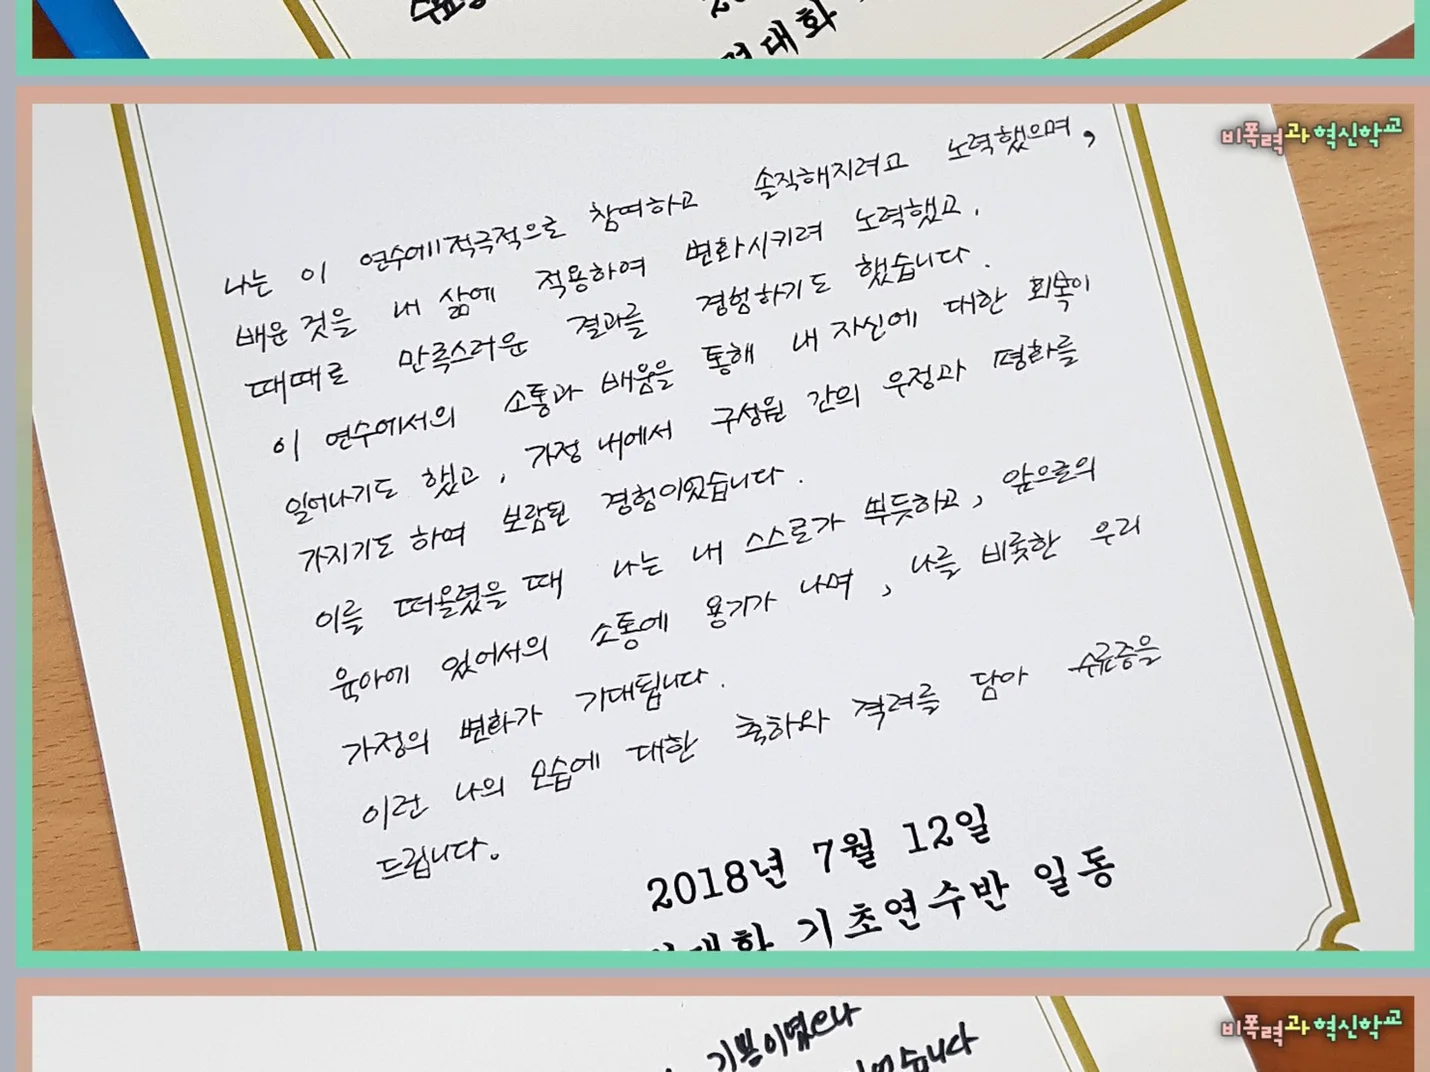 대화
비폭력과 혁신학교
나는 이 연수에 적극적으로 참여하고 솔직해지려고 노력했으며,
배운 것을 내 삶에 적용하여 변화시키려 노력했고,
때때로 만족스러운 결과를 경험하기도 했습니다.
이 연수에서의 소통과 배움을 통해 내 자신에 대한 회복이
일어나기도 했고, 가정 내에서 구성원 간의 우정과 평화를
가지기도 하여 보람된 경험이었습니다.
이를 떠올렸을 때 나는 내 스스로가 뿌듯하고, 앞으로의
육아에 있어서의 소통에 용기가 나며, 나를 비롯한 우리
가정의 변화가 기대됩니다.
이런 나의 모습에 대한 축하와 격려를 담아 수료증을
드립니다.
2018년 7월 12일
대화 기초연수반 일동
비폭력과 혁신학교